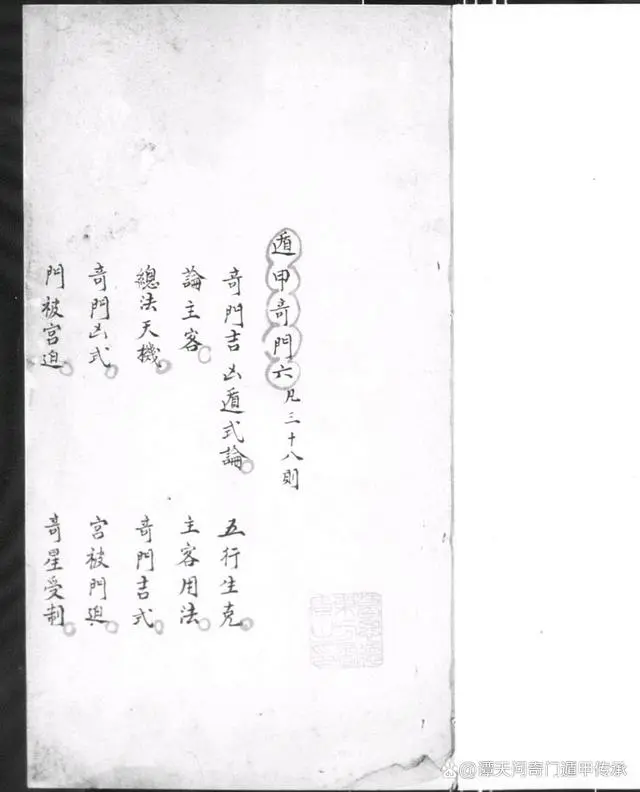 遁甲奇門六 凡三十八則
奇門吉凶遁式論
五行生克
論主客
主客用法
總法天機
奇門吉式
奇門凶式
宮被門迫
門被宮迫
奇星受制
潭天河奇门遁甲传承